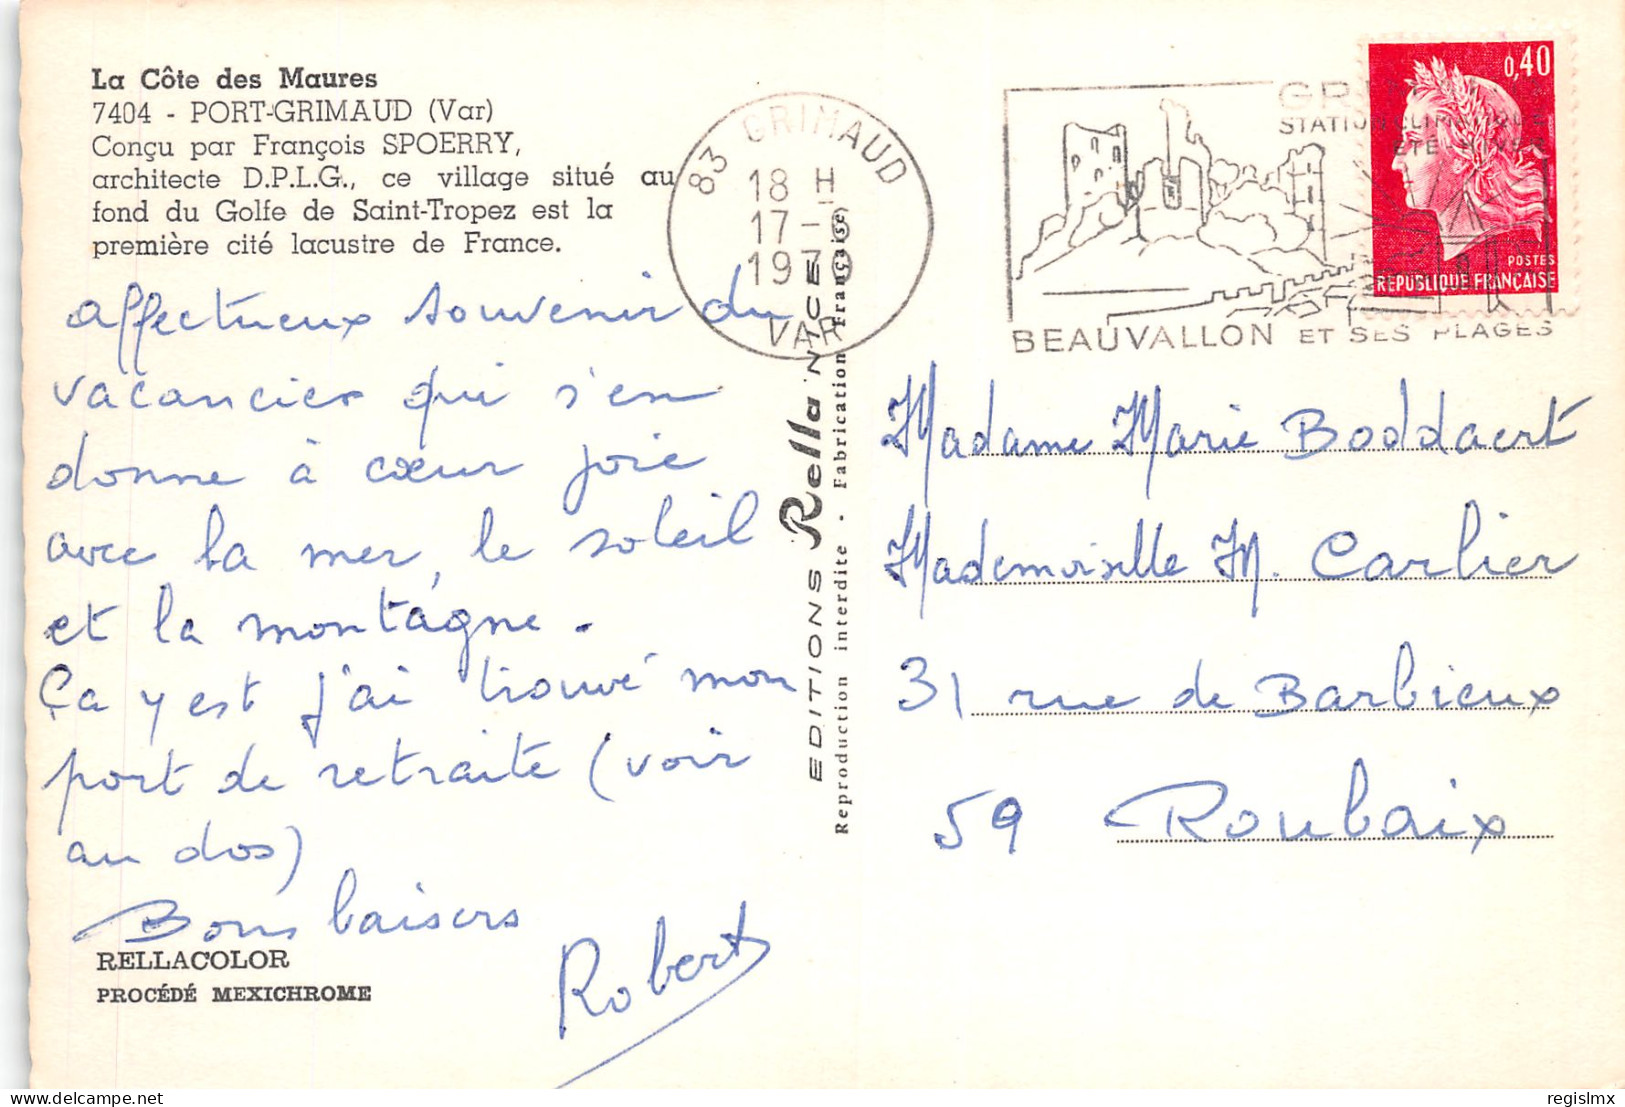 La Côte des Maures
7404 - PORT-GRIMAUD (Var)
Conçu par François SPOERRY,
architecte D.P.L.G., ce village situé au
fond du Golfe de Saint-Tropez est la
première cité lacustre de France.
affectueux souvenir du
vacancier qui s'en
donne à cœur joie
avec la mer, le soleil
et la montagne.
Ça y est j'ai trouvé mon
port de retraite (voir
au dos)
Bons baisers
Robert
RELLACOLOR
PROCÉDÉ MEXICHROME
83 GRIMAUD
18 H
17 -
197
VAR
EDITIONS Rella NICE
Reproduction interdite - Fabrication Française)
STATION CLIMATIQUE
ÉTÉ-HIVER
BEAUVALLON ET SES PLAGES
0,40
POSTES
RÉPUBLIQUE FRANÇAISE
Madame Marie Boddaert
Mademoiselle M. Carlier
31 rue de Barbieux
59 Roubaix
delcampe.net
regislmx